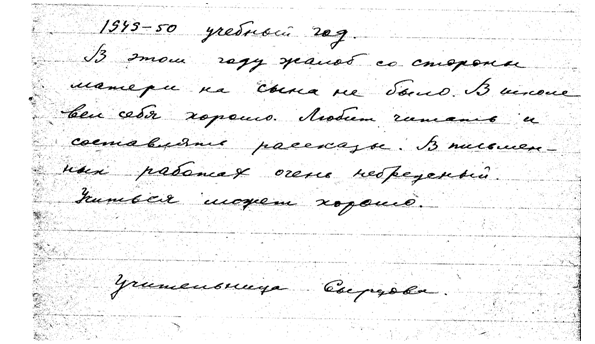 1949-50 учебный год.
В этом году жалоб со стороны
матери на сына не было. В школе
вел себя хорошо. Любит читать и
составлять рассказы. В письмен-
ных работах очень небрежный.
Учиться может хорошо.
Учительница Сырцова.